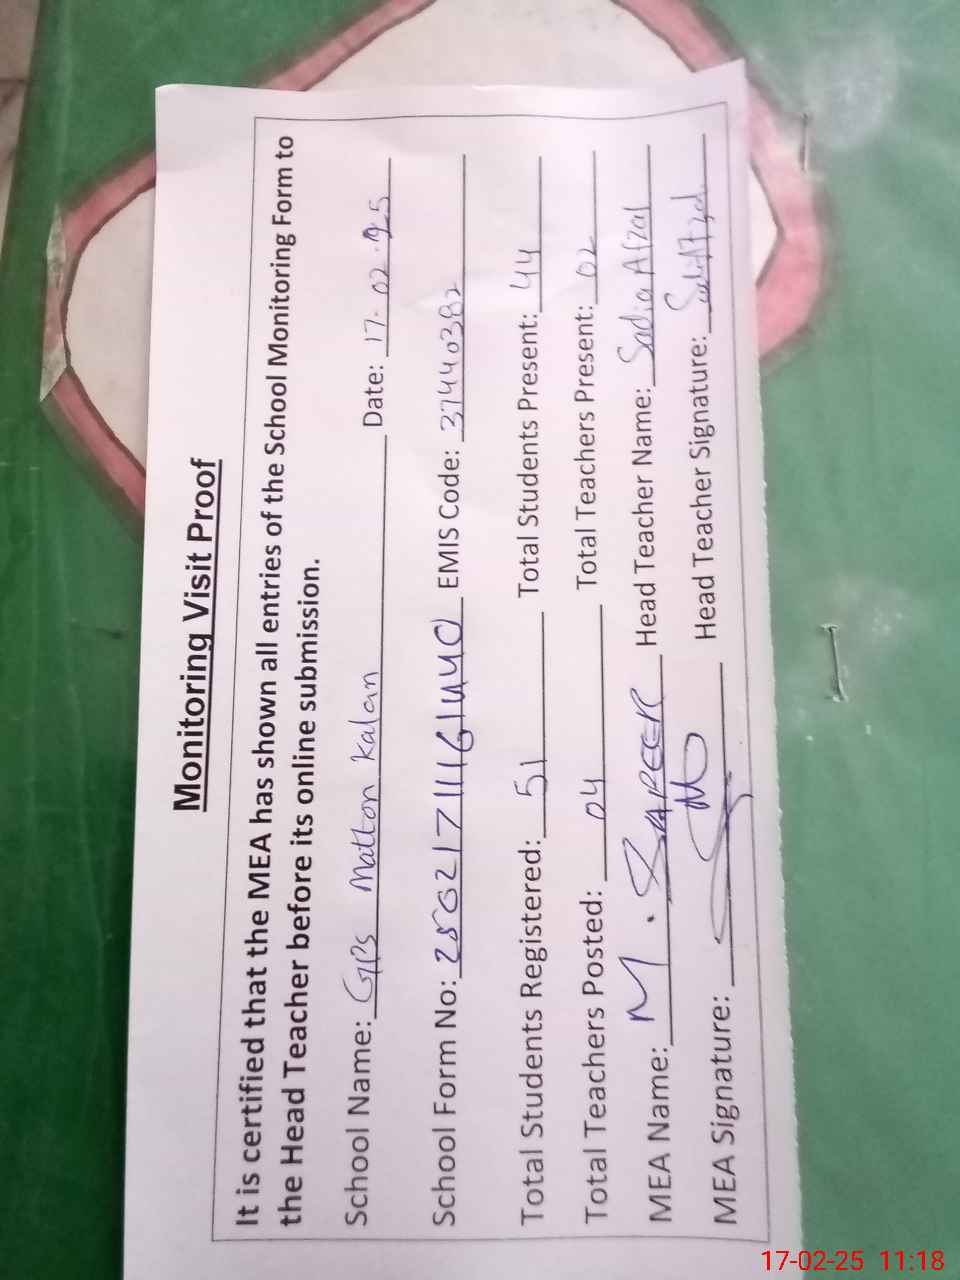 Monitoring Visit Proof
It is certified that the MEA has shown all entries of the School Monitoring Form to
the Head Teacher before its online submission.
School Name: GPS Matton Kalan Date: 17.02.25
School Form No: EMIS Code: 37440382
Total Students Registered: 51 Total Students Present: 44
Total Teachers Posted: 04 Total Teachers Present: 02
MEA Name: M. Head Teacher Name: Sadia Afzal
MEA Signature: Head Teacher Signature: Sadia Afzal
17-02-25 11:18